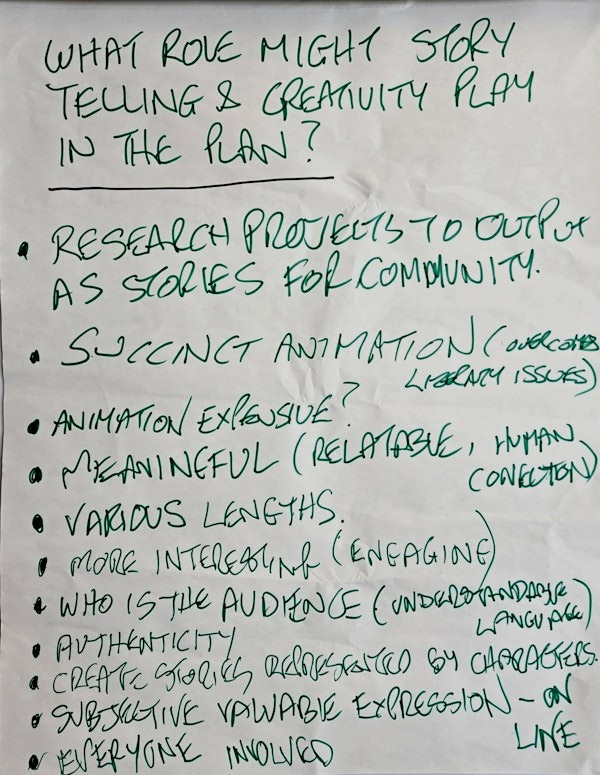 WHAT ROLE MIGHT STORY
TELLING & CREATIVITY PLAY
IN THE PLAN?
• RESEARCH PROJECTS TO OUTPUT
AS STORIES FOR COMMUNITY.
• SUCCINCT ANIMATION (OVERCOMES
LITERACY ISSUES)
• ANIMATION EXPENSIVE?
• MEANINGFUL (RELATABLE, HUMAN
CONECTION)
• VARIOUS LENGTHS.
• MORE INTERESTING (ENGAGING)
• WHO IS THE AUDIENCE (UNDERSTANDABLE
LANGUAGE)
• AUTHENTICITY
• CREATE STORIES REPRESENTED BY CHARACTERS.
• SUBJECTIVE VALUABLE EXPRESSION - ON
LINE
• EVERYONE INVOLVED